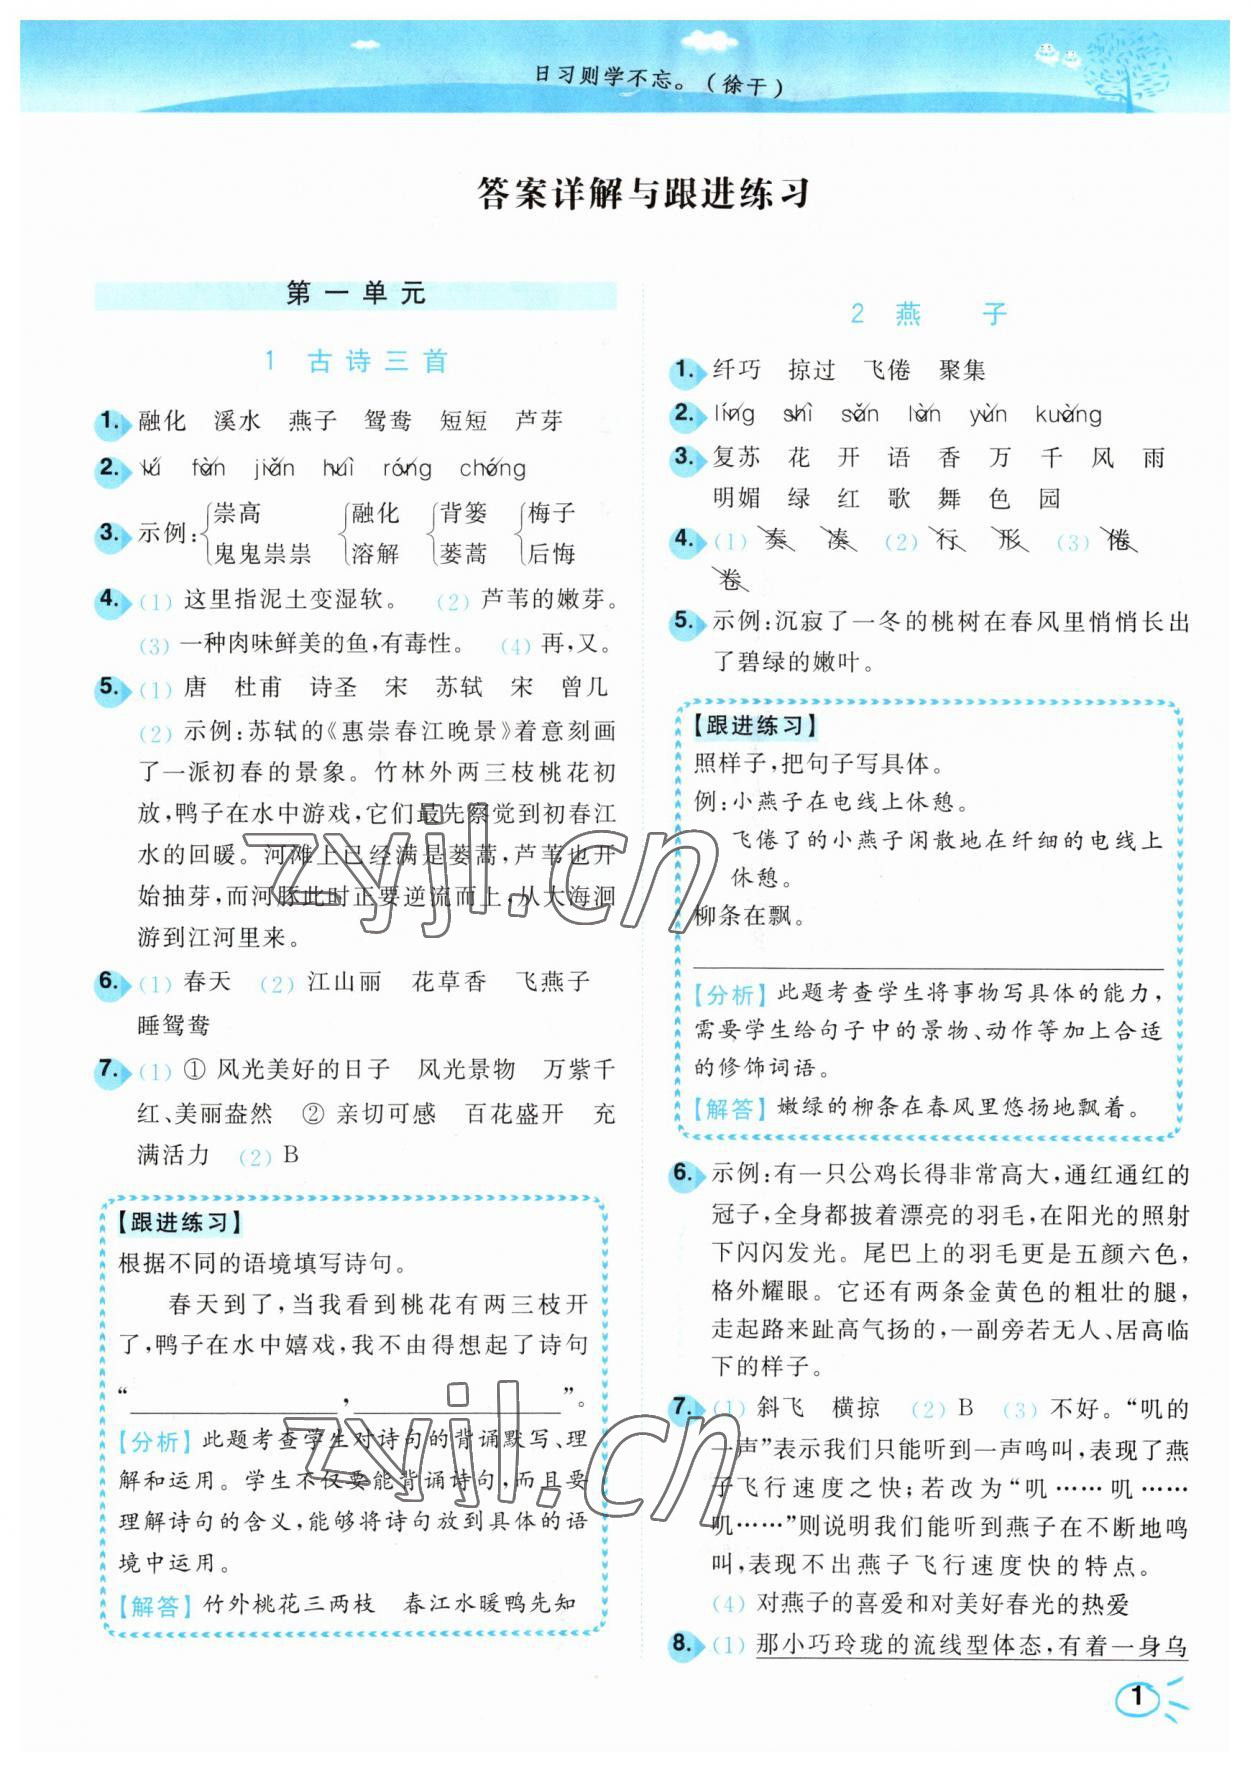 日习则学不忘。(徐干)
答案详解与跟进练习
第一单元
1 古诗三首
1. 融化 溪水 燕子 鸳鸯 短短 芦芽
2. lú fàn jiǎn huì róng chóng
3. 示例:{崇高 鬼鬼祟祟 {融化 溶解 {背篓 蒌蒿 {梅子 后悔
4. (1) 这里指泥土变湿软。 (2) 芦苇的嫩芽。
(3) 一种肉味鲜美的鱼,有毒性。 (4) 再,又。
5. (1) 唐 杜甫 诗圣 宋 苏轼 宋 曾几
(2) 示例:苏轼的《惠崇春江晚景》着意刻画
了一派初春的景象。竹林外两三枝桃花初
放,鸭子在水中游戏,它们最先察觉到初春江
水的回暖。河滩上已经满是蒌蒿,芦苇也开
始抽芽,而河豚此时正要逆流而上,从大海洄
游到江河里来。
6. (1) 春天 (2) 江山丽 花草香 飞燕子
睡鸳鸯
7. (1) ① 风光美好的日子 风光景物 万紫千
红、美丽盎然 ② 亲切可感 百花盛开 充
满活力 (2) B
【跟进练习】
根据不同的语境填写诗句。
春天到了,当我看到桃花有两三枝开
了,鸭子在水中嬉戏,我不由得想起了诗句
“ , ”。
[分析] 此题考查学生对诗句的背诵默写、理
解和运用。学生不仅要能背诵诗句,而且要
理解诗句的含义,能够将诗句放到具体的语
境中运用。
[解答] 竹外桃花三两枝 春江水暖鸭先知
2 燕 子
1. 纤巧 掠过 飞倦 聚集
2. líng shì sǎn làn yùn kuàng
3. 复苏 花 开 语 香 万 千 风 雨
明媚 绿 红 歌 舞 色 园
4. (1) 奏 凑 (2) 行 形 (3) 倦
卷
5. 示例:沉寂了一冬的桃树在春风里悄悄长出
了碧绿的嫩叶。
【跟进练习】
照样子,把句子写具体。
例:小燕子在电线上休憩。
飞倦了的小燕子闲散地在纤细的电线上
休憩。
柳条在飘。
[分析] 此题考查学生将事物写具体的能力,
需要学生给句子中的景物、动作等加上合适
的修饰词语。
[解答] 嫩绿的柳条在春风里悠扬地飘着。
6. 示例:有一只公鸡长得非常高大,通红通红的
冠子,全身都披着漂亮的羽毛,在阳光的照射
下闪闪发光。尾巴上的羽毛更是五颜六色,
格外耀眼。它还有两条金黄色的粗壮的腿,
走起路来趾高气扬的,一副旁若无人、居高临
下的样子。
7. (1) 斜飞 横掠 (2) B (3) 不好。“叽的
一声”表示我们只能听到一声鸣叫,表现了燕
子飞行速度之快;若改为“叽……叽……
叽……”则说明我们能听到燕子在不断地鸣
叫,表现不出燕子飞行速度快的特点。
(4) 对燕子的喜爱和对美好春光的热爱
8. (1) 那小巧玲珑的流线型体态,有着一身乌
1
zyjl.cn
zyjl.cn